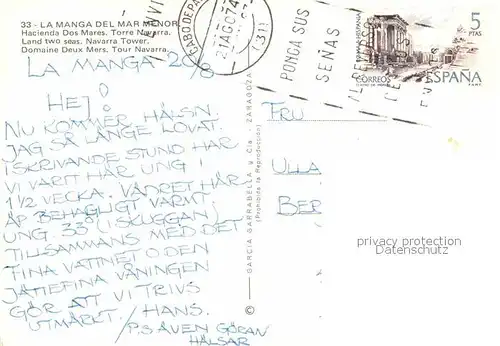 33 - LA MANGA DEL MAR MENOR.
Hacienda Dos Mares. Torre Navarra.
Land two seas. Navarra Tower.
Domaine Deux Mers. Tour Navarra.
LA MANGA 20/8
HEJ!
NU KOMMER HÄLSN.
JAG SÅ LÄNGE LOVAT.
I SKRIVANDE STUND HAR
VI VARIT HÄR UNG
1 1/2 VECKA. VÄDRET HÄR
ÄR BEHAGLIGT VARMT,
UNG. 33° (I SKUGGAN)
TILLSAMMANS MED DET
FINA VATTNET O DEN
JÄTTEFINA VÅNINGEN
GÖR ATT VI TRIVS
UTMÄRKT. / HANS.
/ P.S ÄVEN GÖRAN
HÄLSAR
GARCIA GARRABELLA y Cía. - ZARAGOZA
(Prohibida la Reproducción)
21 AGO 74
(31)
PONGA SUS
SEÑAS
5
PTAS
CORREOS
ESPAÑA
F.N.M.T.
FRU
ULLA
BER
privacy protection
Datenschutz